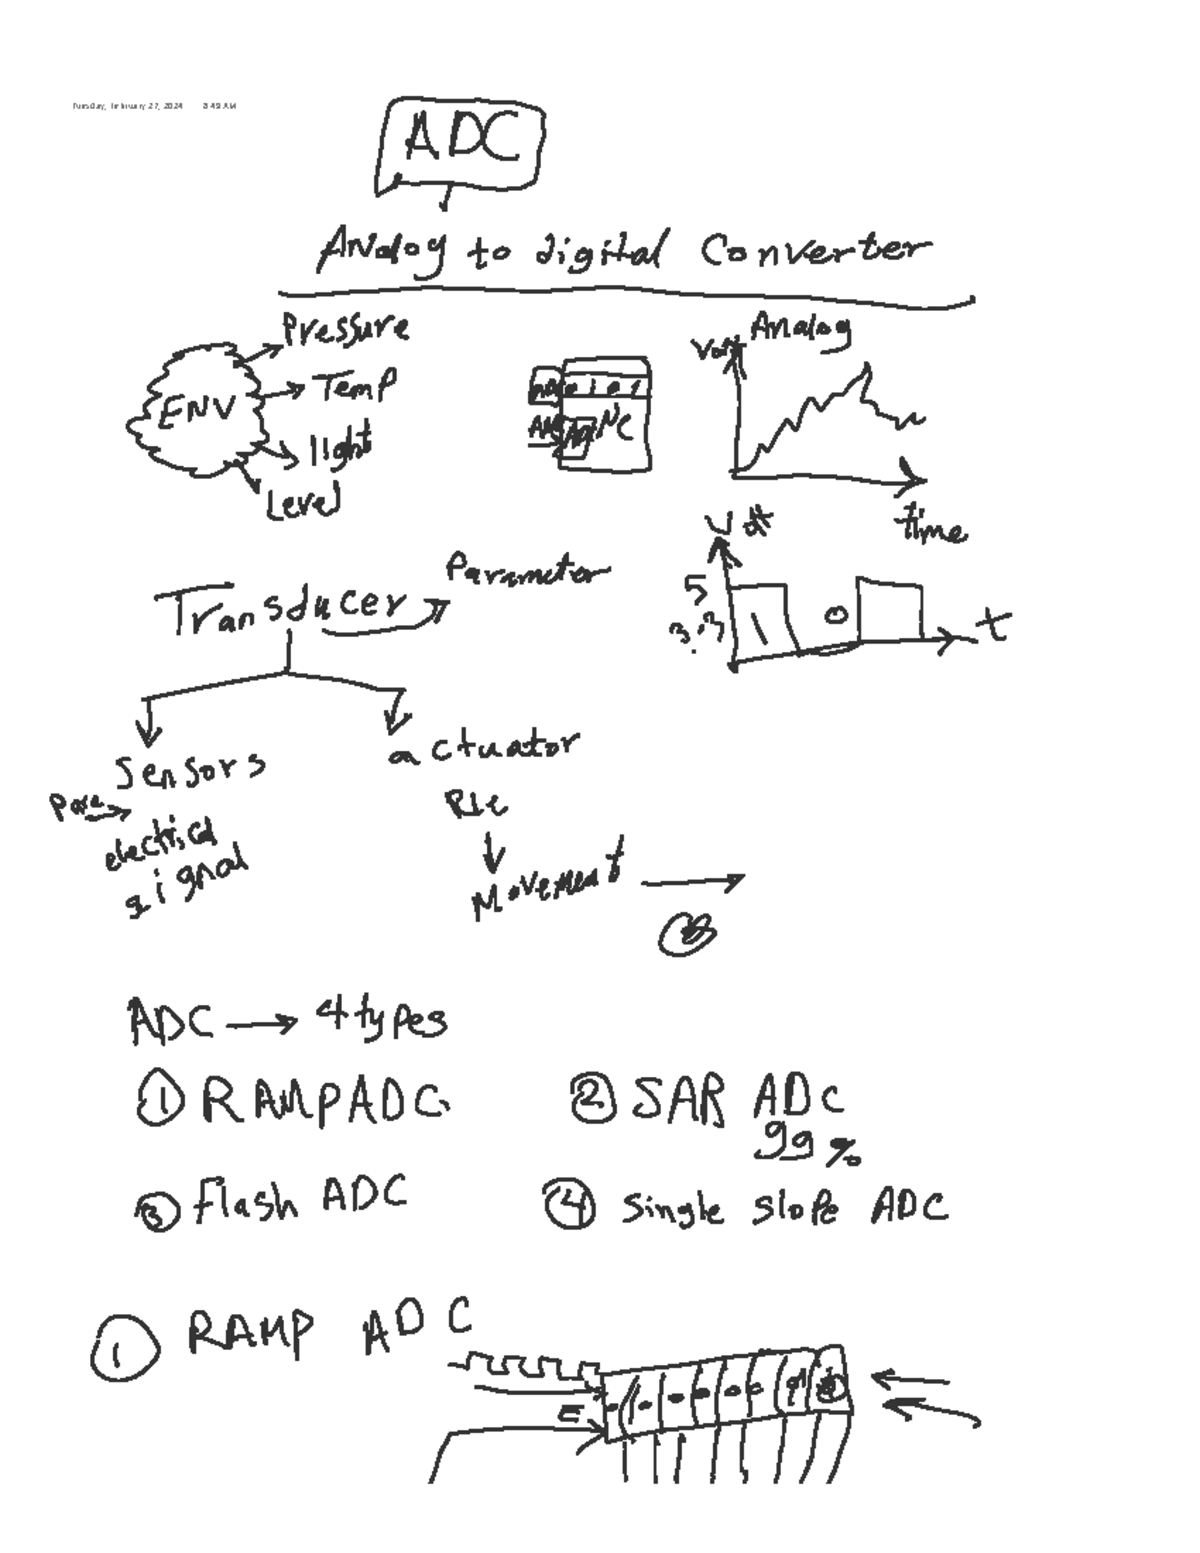 Tuesday, February 27, 2024 8:43 AM
ADC
Analog to digital Converter
Pressure
Temp
light
Level
ENV
Analog
Volt
time
Volt
5
3.3
1
0
t
Transducer
Parameter
Sensors
actuator
Para
electrical
signal
Movement
ADC → 4 types
① RAMP ADC
② SAR ADC
99 %
③ Flash ADC
④ Single slope ADC
① RAMP ADC
E